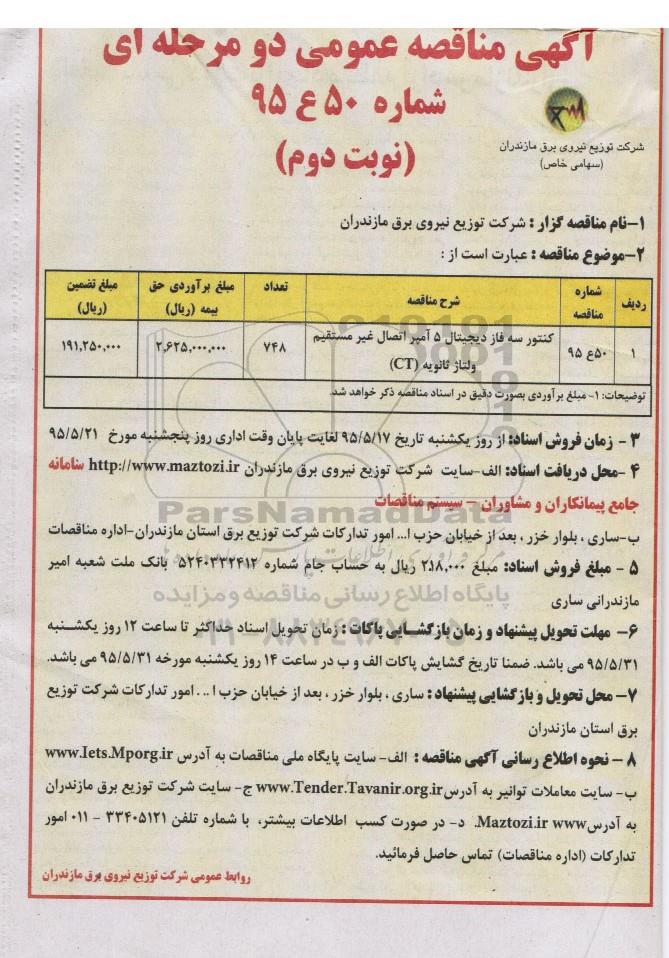 آگهی مناقصه عمومی دو مرحله ای
شماره ۵۰ ع ۹۵
(نوبت دوم)
شرکت توزیع نیروی برق مازندران
(سهامی خاص)
۱-نام مناقصه گزار : شرکت توزیع نیروی برق مازندران
۲-موضوع مناقصه : عبارت است از :
ردیف | شماره مناقصه | شرح مناقصه | تعداد | مبلغ برآوردی حق بیمه (ریال) | مبلغ تضمین (ریال)
۱ | ۵۰ع ۹۵ | کنتور سه فاز دیجیتال ۵ آمپر اتصال غیر مستقیم ولتاژ ثانویه (CT) | ۷۴۸ | ۲,۶۲۵,۰۰۰,۰۰۰ | ۱۹۱,۲۵۰,۰۰۰
توضیحات: ۱- مبلغ برآوردی بصورت دقیق در اسناد مناقصه ذکر خواهد شد.
۳ - زمان فروش اسناد: از روز یکشنبه تاریخ ۹۵/۵/۱۷ لغایت پایان وقت اداری روز پنجشنبه مورخ ۹۵/۵/۲۱
۴ -محل دریافت اسناد: الف-سایت شرکت توزیع نیروی برق مازندران http://www.maztozi.ir سامانه
جامع پیمانکاران و مشاوران – سیستم مناقصات
ParsNamadData
ب-ساری ، بلوار خزر ، بعد از خیابان حزب ا... امور تدارکات شرکت توزیع برق استان مازندران-اداره مناقصات
۵ - مبلغ فروش اسناد: مبلغ ۲۱۸,۰۰۰ ریال به حساب جام شماره ۵۲۴۰۳۳۲۴۱۲ بانک ملت شعبه امیر
پایگاه اطلاع رسانی مناقصه و مزایده
مازندرانی ساری
۶- مهلت تحویل پیشنهاد و زمان بازگشایی پاکات : زمان تحویل اسناد حداکثر تا ساعت ۱۲ روز یکشنبه
۹۵/۵/۳۱ می باشد. ضمنا تاریخ گشایش پاکات الف و ب در ساعت ۱۴ روز یکشنبه مورخه ۹۵/۵/۳۱ می باشد.
۷- محل تحویل و بازگشایی پیشنهاد : ساری ، بلوار خزر ، بعد از خیابان حزب ا ... . امور تدارکات شرکت توزیع
برق استان مازندران
۸ - نحوه اطلاع رسانی آگهی مناقصه : الف- سایت پایگاه ملی مناقصات به آدرس www.Iets.Mporg.ir
ب- سایت معاملات توانیر به آدرس www.Tender.Tavanir.org.ir ج- سایت شرکت توزیع برق مازندران
به آدرس Maztozi.ir www. د- در صورت کسب اطلاعات بیشتر، با شماره تلفن ۳۳۴۰۵۱۲۱ - ۰۱۱ امور
تدارکات (اداره مناقصات) تماس حاصل فرمائید.
روابط عمومی شرکت توزیع نیروی برق مازندران